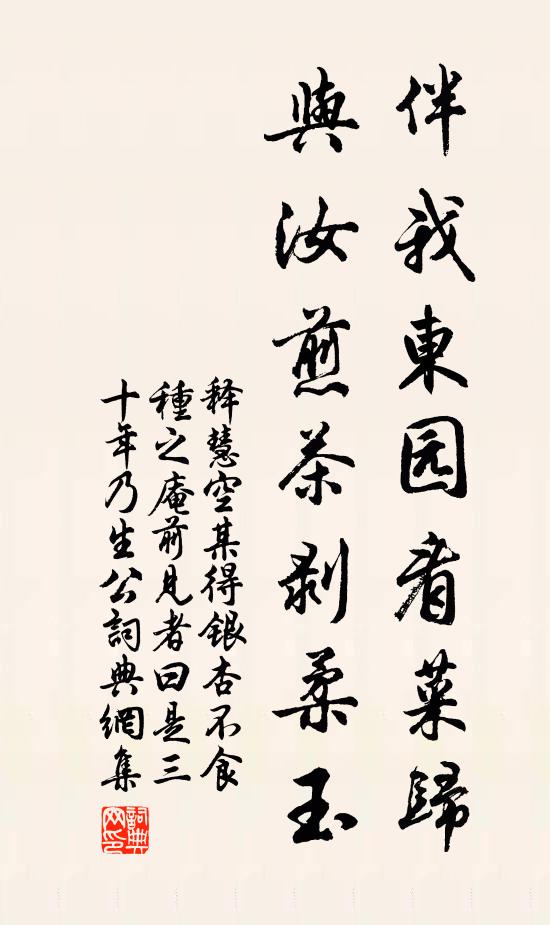 伴我東园看菜歸
與汝煎茶剥柔玉
释慧空某得銀杏不食
種之庵前見者曰是三
十年乃生公詞典網集
詞典網印